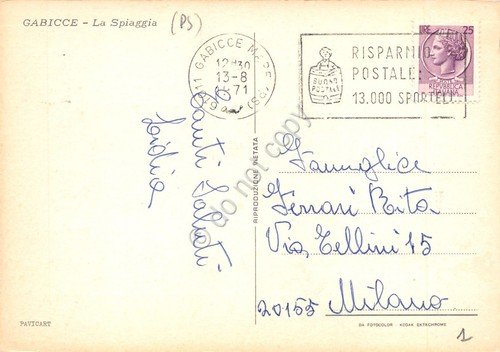 GABICCE - La Spiaggia
(PS)
61011 GABICCE MARE (PS)
12 30
13-8
1971
BUONO
POSTALE
RISPARMIO
POSTALE:
13.000 SPORTELLI
25
REPUBBLICA
ITALIANA
Tanti Saluti
Lidia
RIPRODUZIONE VIETATA
do not copy
Famiglia
Ferrari Rita
Via Tellini 15
20155 Milano
PAVICART
DA FOTOCOLOR KODAK EKTACHROME
1